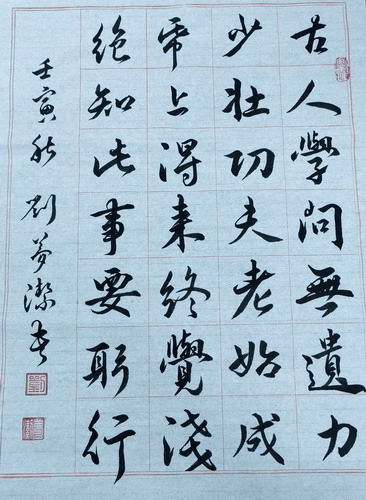 古人學問無遺力
少壯功夫老始成
帋上得來終覺淺
絕知此事要躬行
壬寅秋劉夢潔書